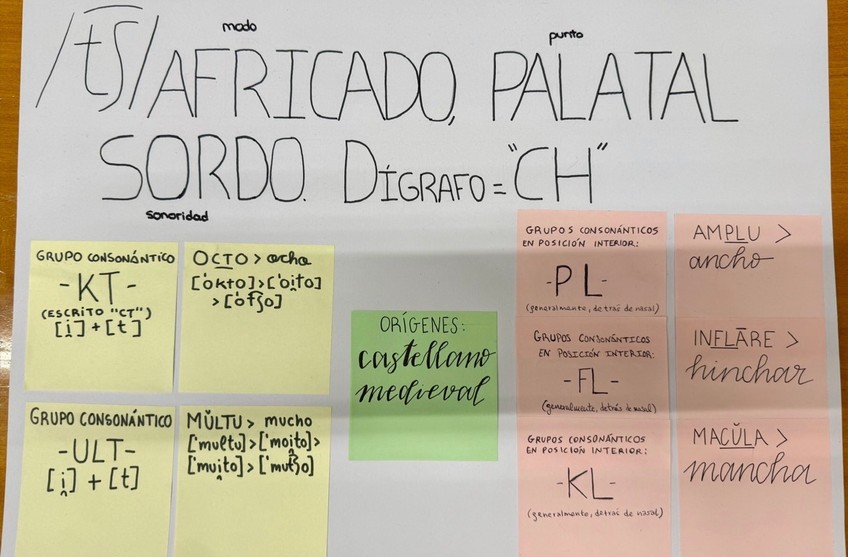 modo
punto
/t͡ʃ/ AFRICADO, PALATAL
SORDO. DÍGRAFO = "CH"
sonoridad
GRUPO CONSONÁNTICO
-KT-
(ESCRITO "CT")
[i̯] + [t]
OCTO > ocho
['okto] > ['oi̯to]
> ['ot͡ʃo]
GRUPO CONSONÁNTICO
-ULT-
[i̯] + [t]
MŬLTU > mucho
['multu] > ['moi̯to] >
['mui̯to] > ['mut͡ʃo]
ORÍGENES:
castellano
medieval
GRUPOS CONSONÁNTICOS
EN POSICIÓN INTERIOR:
-PL-
(generalmente, detrás de nasal)
GRUPOS CONSONÁNTICOS
EN POSICIÓN INTERIOR:
-FL-
(generalmente, detrás de nasal)
GRUPOS CONSONÁNTICOS
EN POSICIÓN INTERIOR:
-KL-
(generalmente, detras de nasal)
AMPLU >
ancho
INFLĀRE >
hinchar
MACŬLA >
mancha